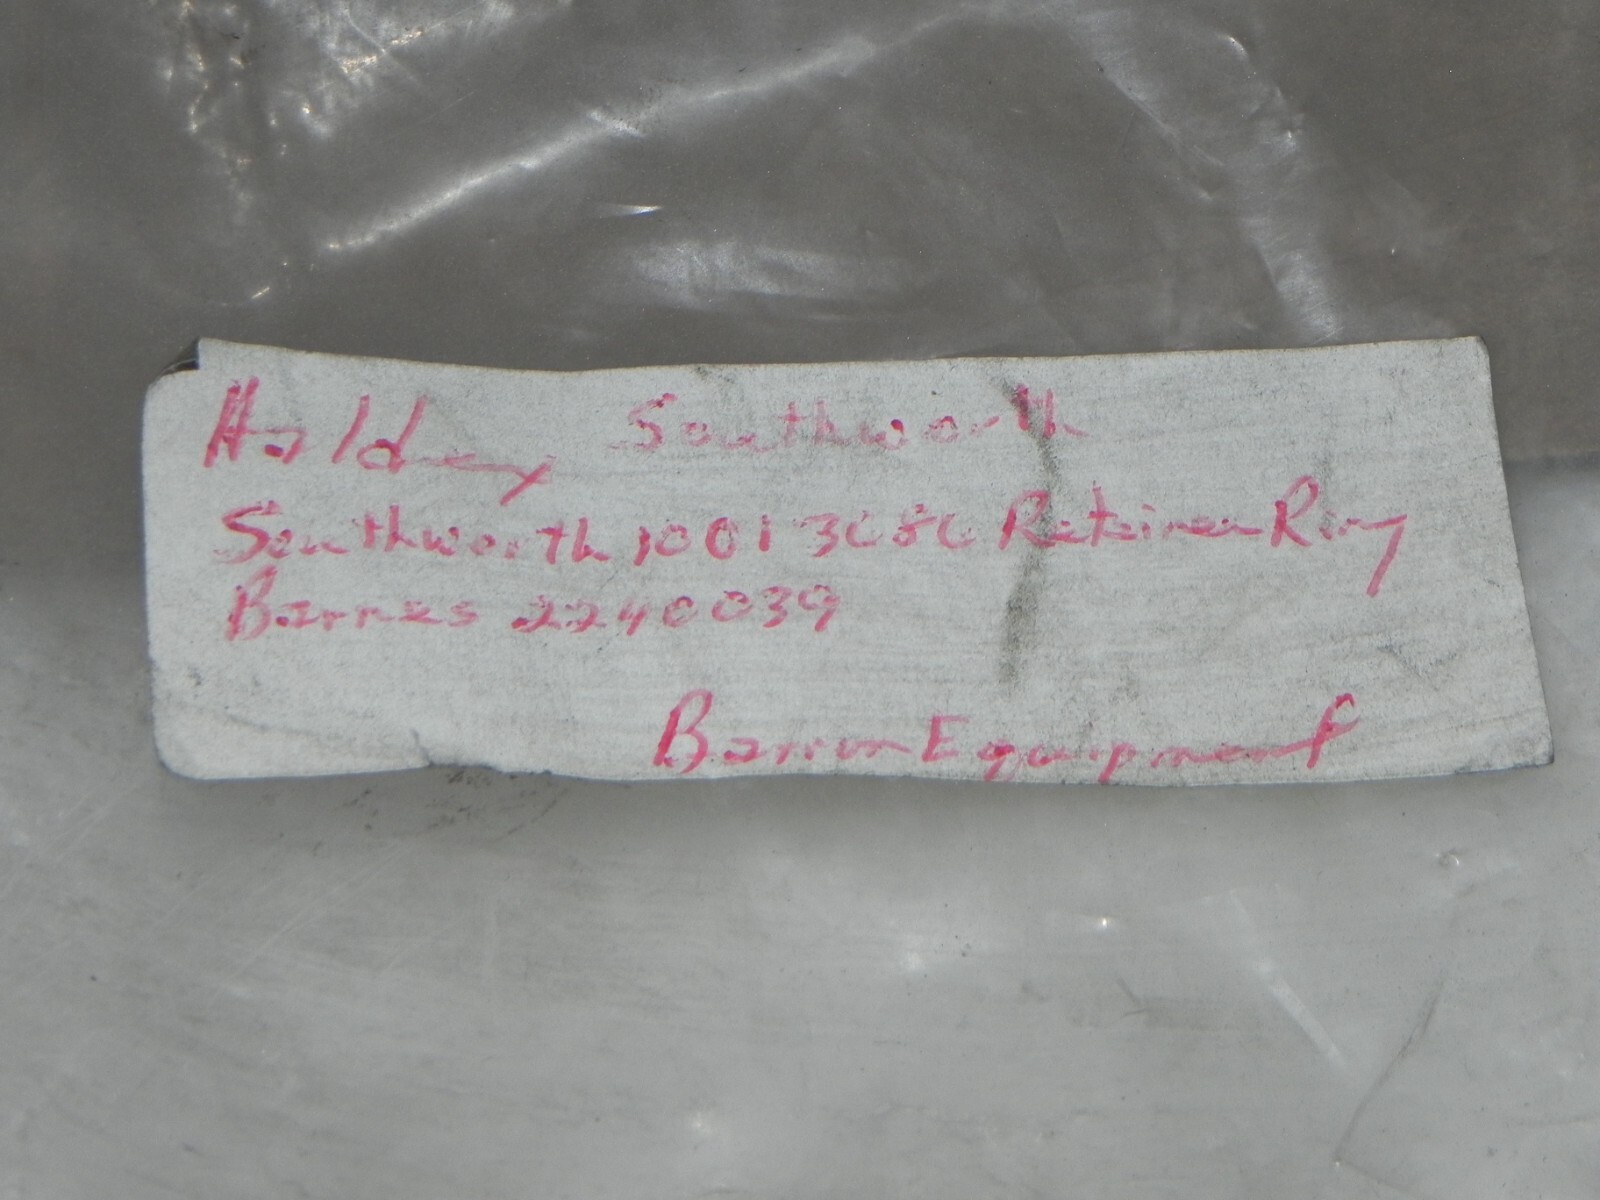 Southworth
Southworth Retainer Ring
Barnes 2240039
Barron Equipment